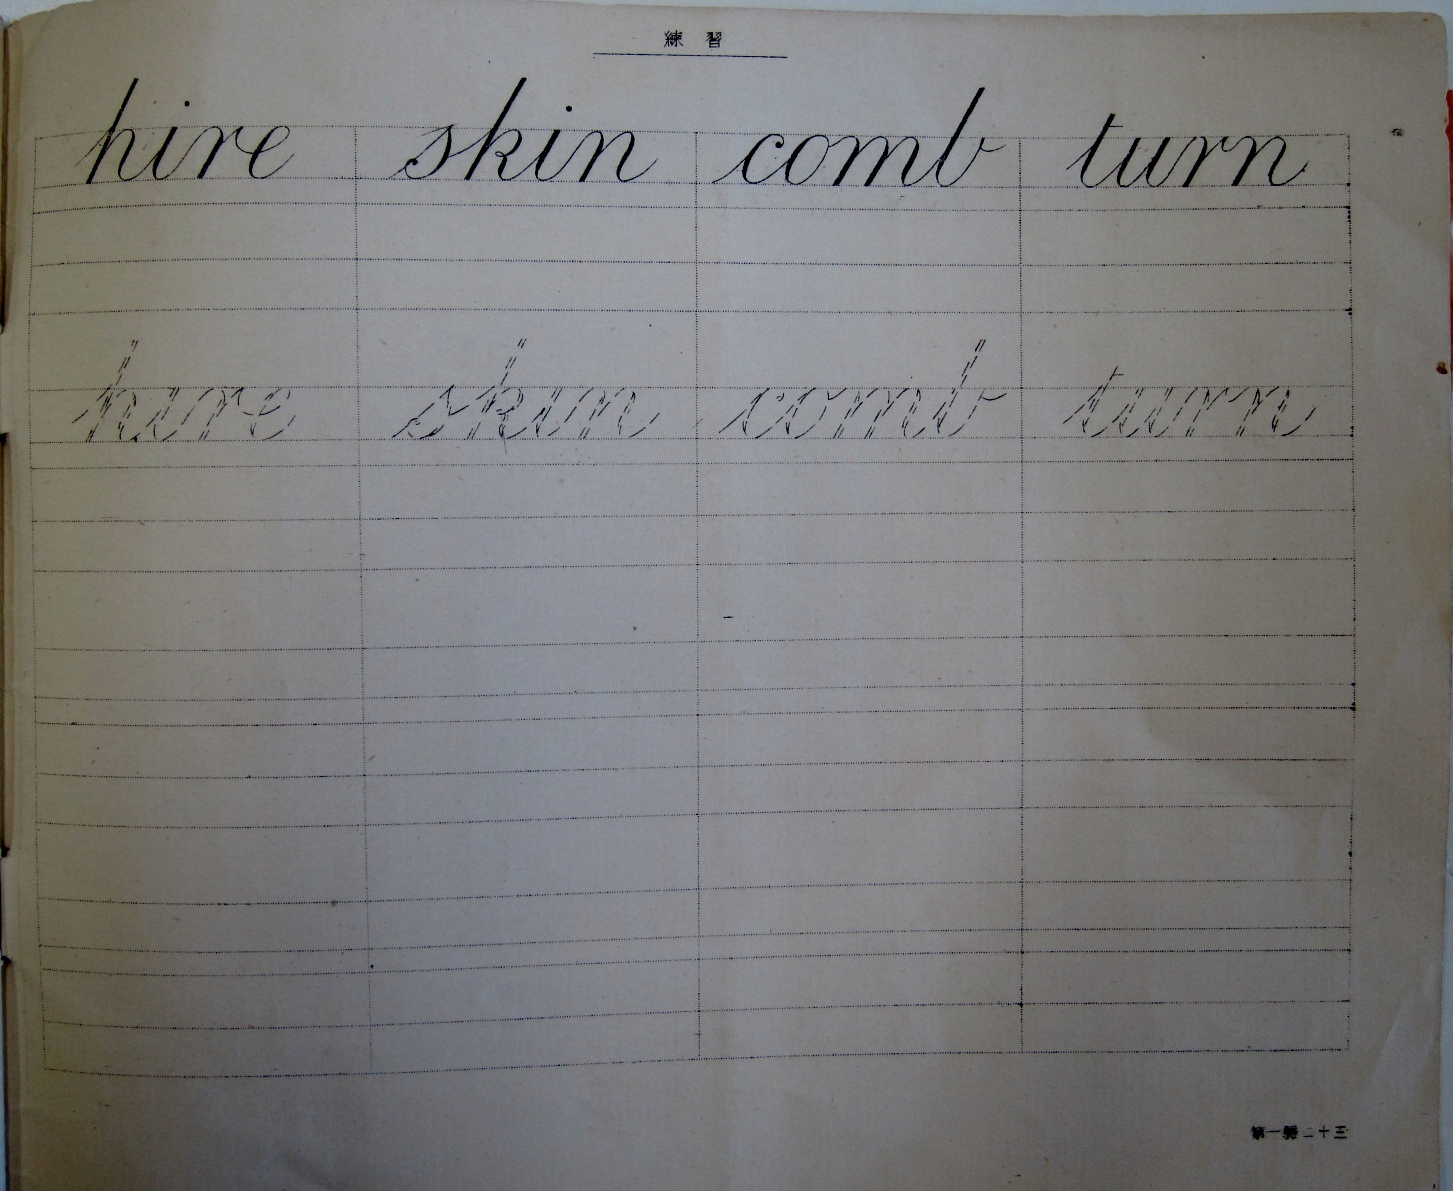 練習
hire skin comb turn
hire skin comb turn
第一号 二十三